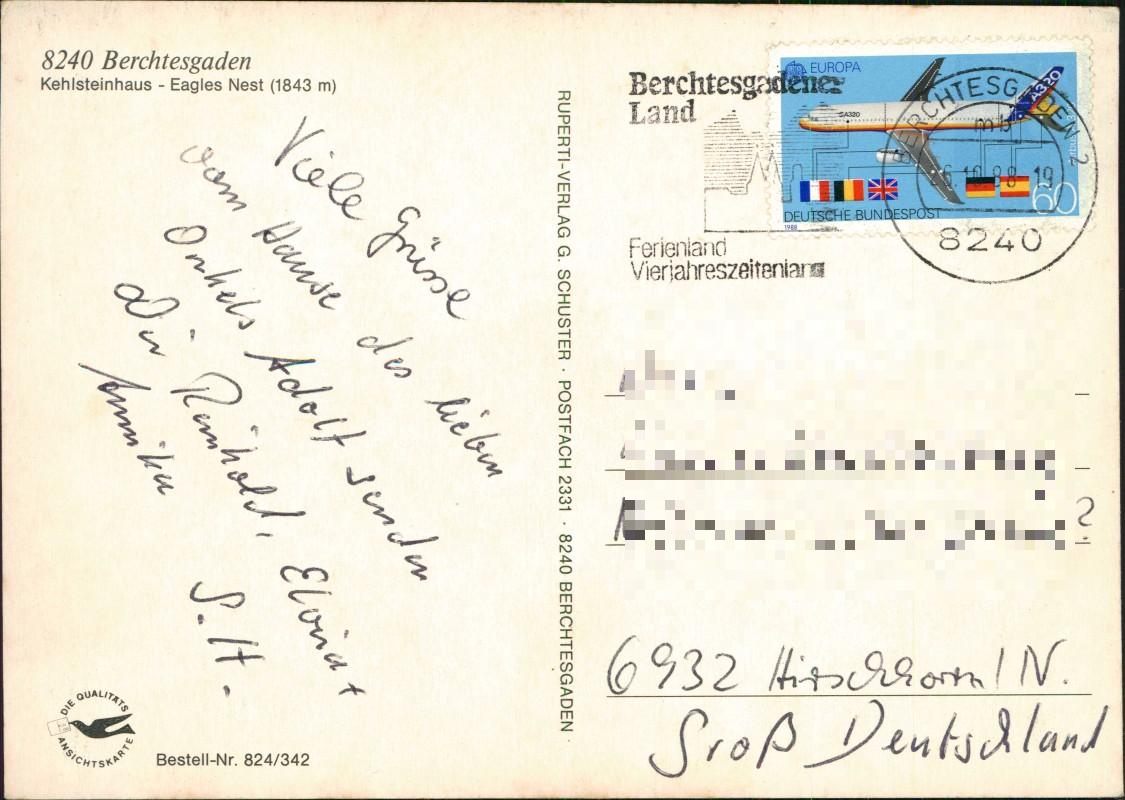 8240 Berchtesgaden
Kehlsteinhaus - Eagles Nest (1843 m)
Viele Grüsse
vom Hause des lieben
Onkels Adolf senden
Dir Reinhold, Elvira +
Annika
S. H.
DIE QUALITÄTS
ANSICHTSKARTE
Bestell-Nr. 824/342
RUPERTI-VERLAG G. SCHUSTER · POSTFACH 2331 · 8240 BERCHTESGADEN
Berchtesgadener
Land
Ferienland
Vierjahreszeitenland
EUROPA
A320
A320
DEUTSCHE BUNDESPOST
60
1988
BERCHTESGADEN 2
mb
6.10.88 19
8240
6932 Hirschhorn/N.
Groß Deutschland